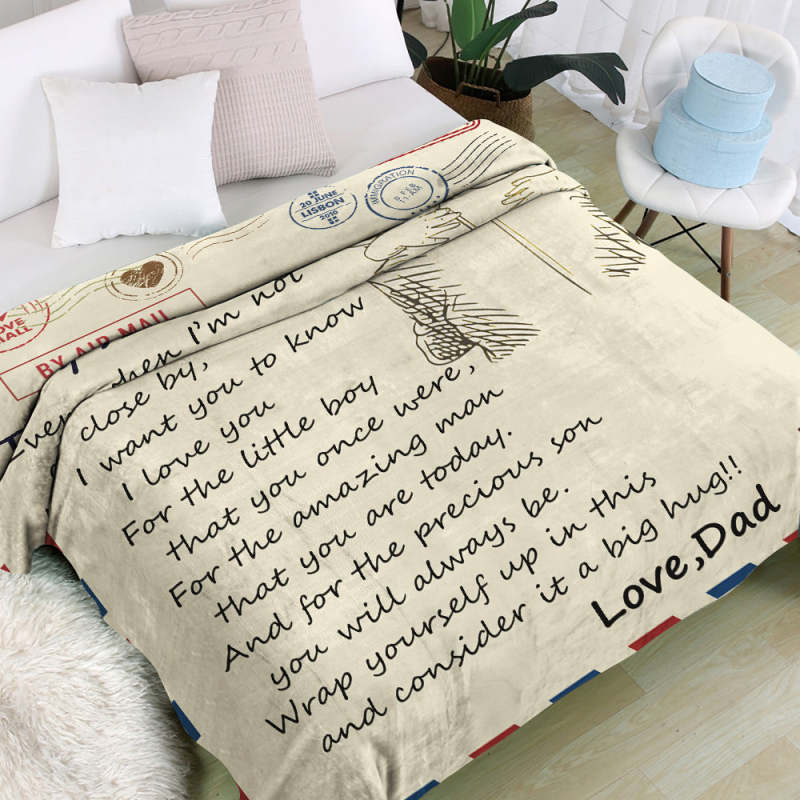 20 JUNE
LISBON
2010
IMMIGRATION
LOVE
MALL
BY AIR MAIL
Even when I'm not
close by,
I want you to know
I love you
For the little boy
that you once were,
For the amazing man
that you are today.
And for the precious son
you will always be.
Wrap yourself up in this
and consider it a big hug!!
Love,Dad